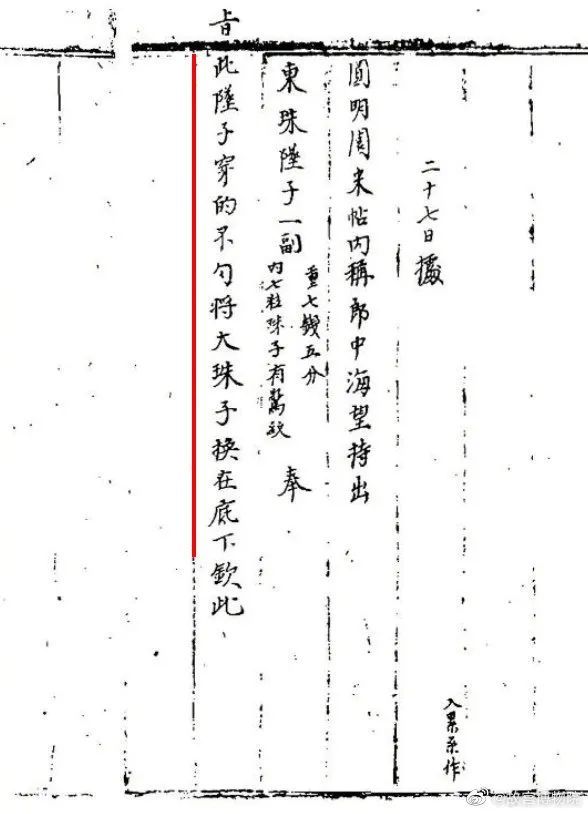 入累糸作
二十七日據
圓明園來帖內稱郎中海望持出
東珠墜子一副
重七錢五分
內七粒珠子有驚紋
奉
旨此墜子穿的不勻將大珠子換在底下欽此
@故宫博物院